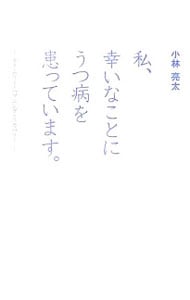 小林 亮太
私、
幸いなことに
うつ病を
患っています。